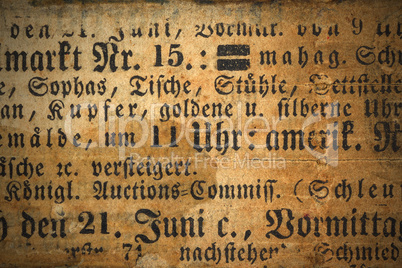 den 21. Juni, Vormitt. von 9 U
lmarkt Nr. 15.: mahag. Sch
e, Sophas, Tische, Stühle, Bettstelle
an, Kupfer, goldene u. silberne Uhr
emälde, um 11 Uhr: amerik. N
äsche ꝛc. versteigert.
Königl. Auctions-Commiss. (Schleu
den 21. Juni c., Vormitta
71 nachstehen Schmied